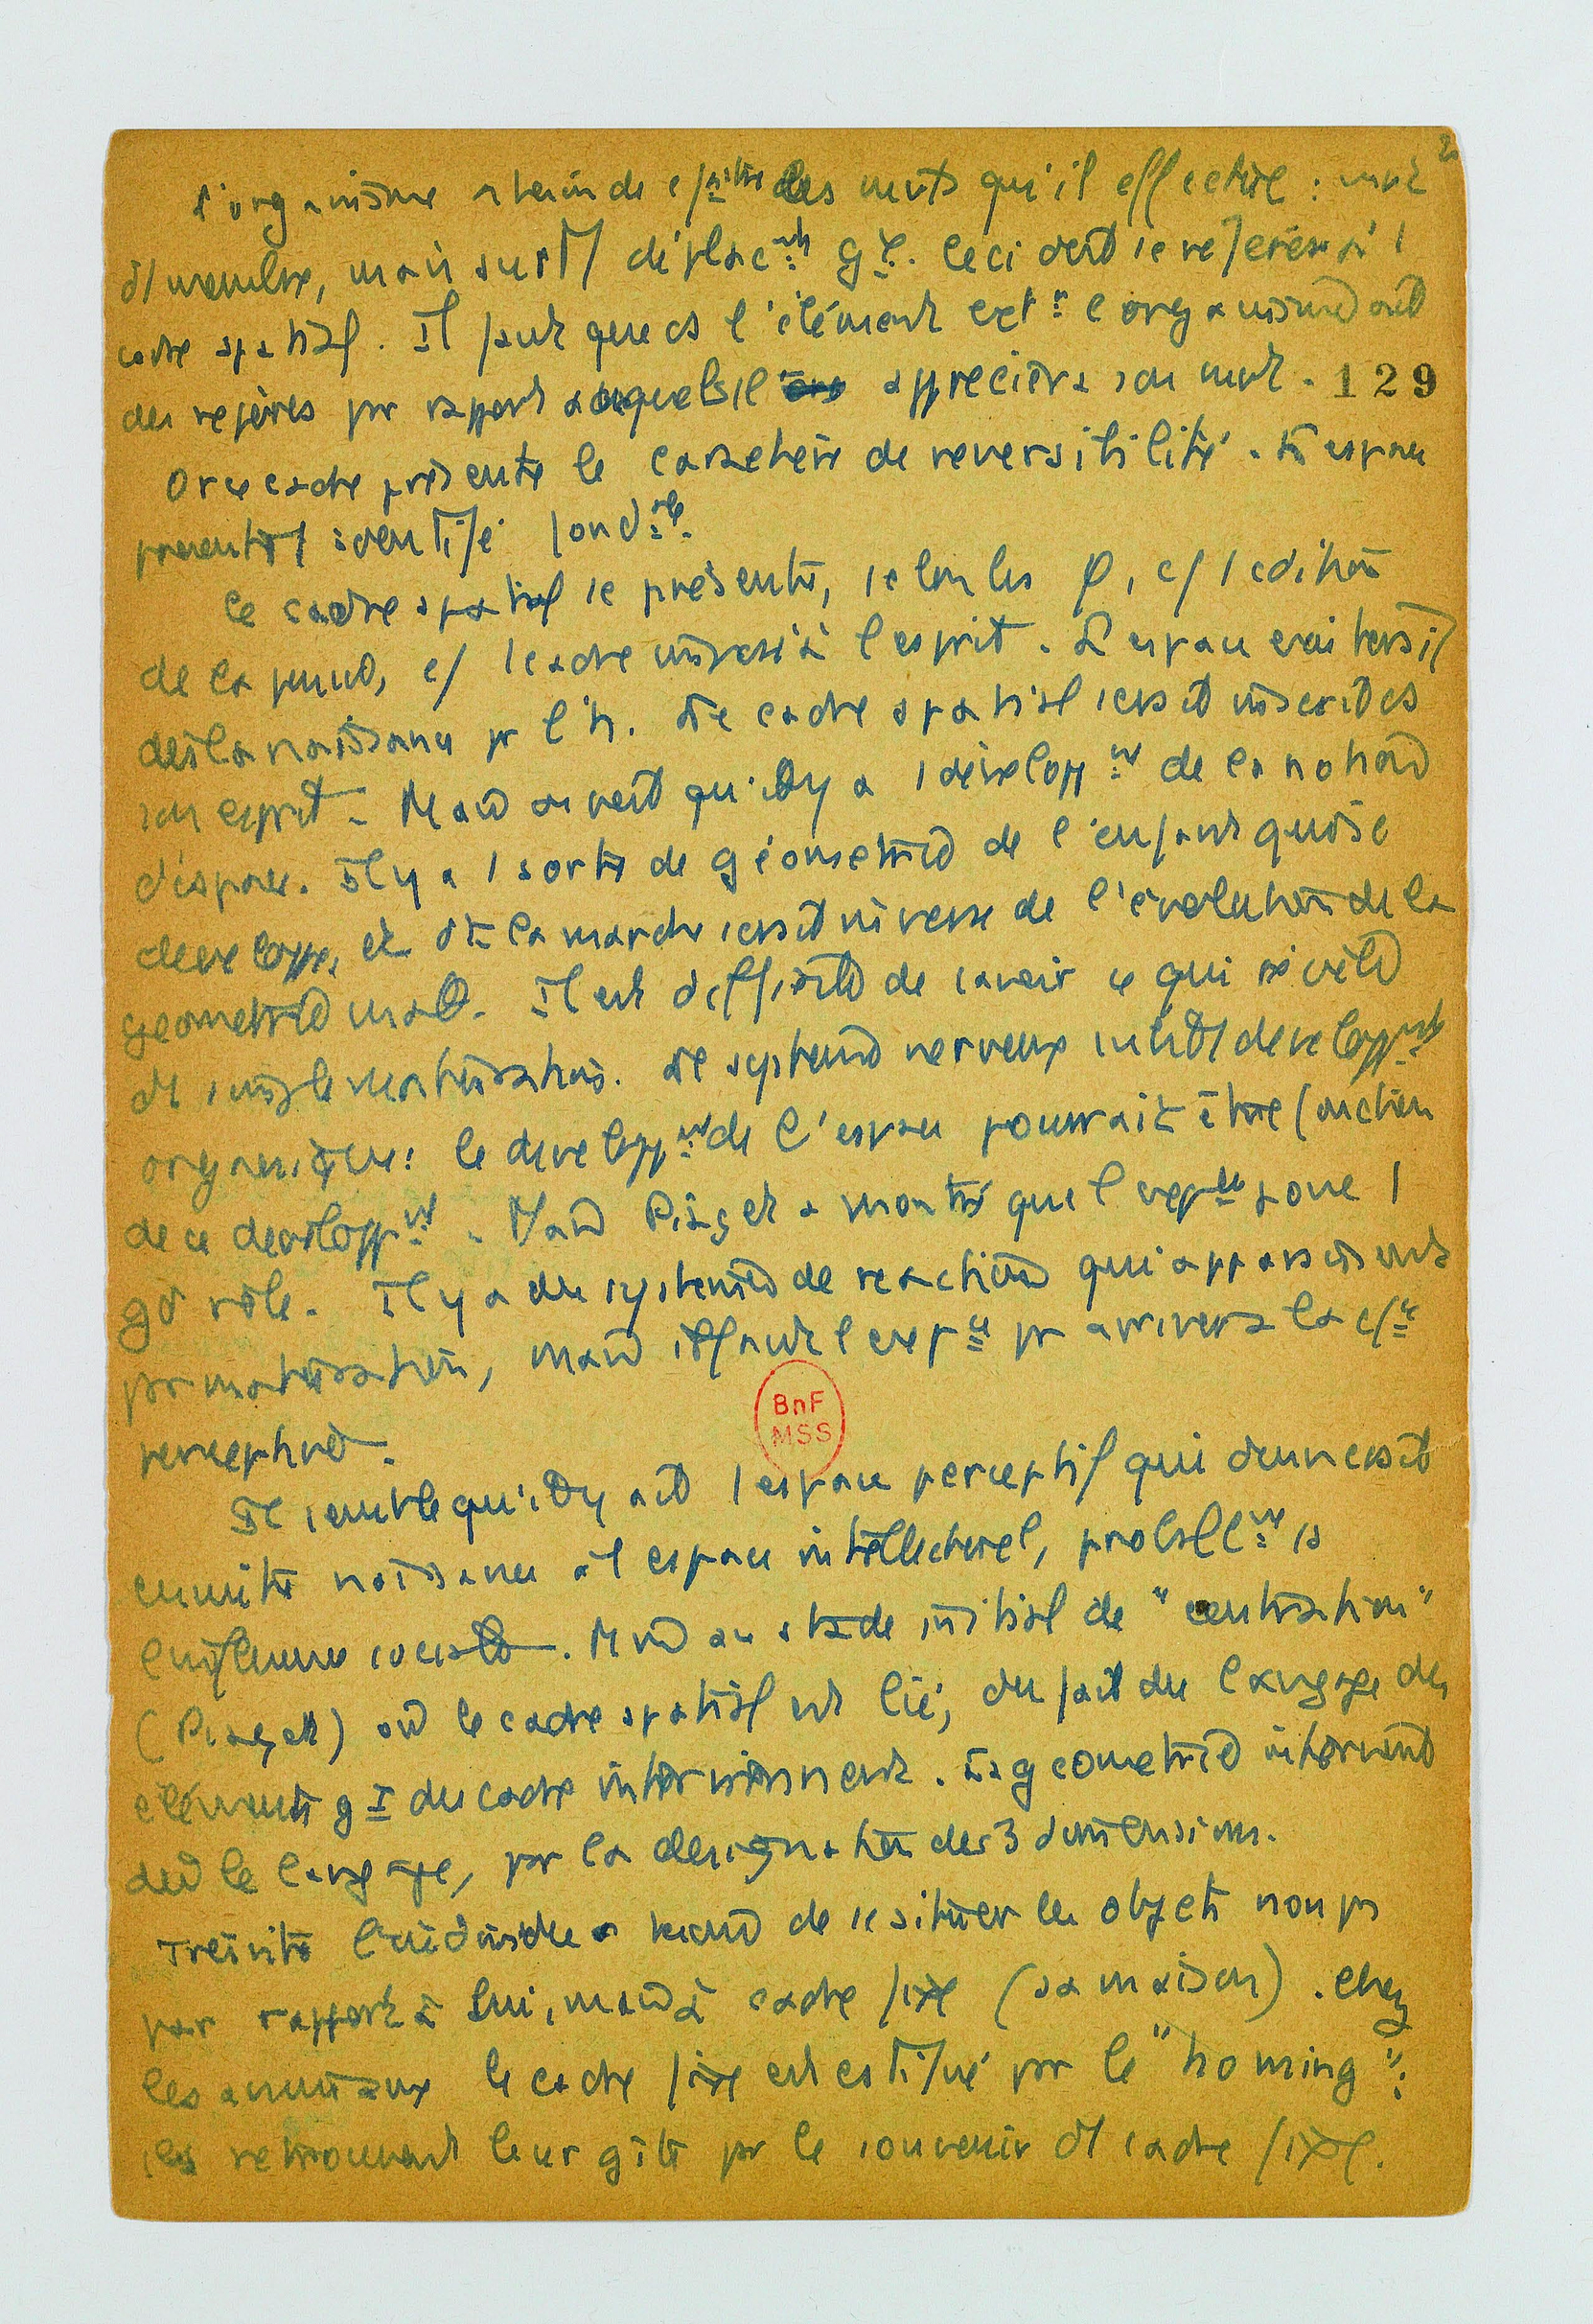 l'organisme a besoin de c/ître les mvts qu'il effectue : mvt
d'1 membre, mais surt/ déplac^nts g^x. Ceci doit se référer à 1
cadre spatial. Il faut que ds l'élément ext^r l'organisme ait
des repères par rapport auxquels il appréciera son mvt. 129
Or ce cadre présente le caractère de réversibilité. L'espace
fond^al.
Le cadre spatial se présente, selon les φ, c/ 1 cdition
de la pensée, c/ 1 cadre imposé à l'esprit. L'espace existerait
dès la naissance pr l'h. Le cadre spatial serait inscrit ds
son esprit. Mais on voit qu'il y a 1 développ^nt de la notion
d'espace. Il y a 1 sorte de géométrie de l'enfant qui se
développe, et dt la marche serait inverse de l'évolution de la
géométrie . Il est difficile de savoir ce qui révèle
d'1 simple maturation. Le système nerveux subit 1 développ^nt
organique : le développ^nt de l'espace pourrait être fonction
de ce développ^nt. Mais Piaget a montré que l'exp^ce joue 1
gd rôle. Il y a des systèmes de réactions qui apparaissent
par maturation, mais il faut l'exp^ce pr arriver à la c/^ce
perceptive.
Il semble qu'il y ait 1 espace perceptif qui donnerait
ensuite naissance à l'espace intellectuel, probabl^nt ss
l'influence sociale. Mais au stade initial de "centration"
(Piaget) où le cadre spatial est lié, du fait du langage des
éléments g^x du cadre interviennent. La géométrie intervient
ds le langage, par la désignation des 3 dimensions.
Très vite l'individu a besoin de se situer les objets non ps
par rapport à lui, mais à cadre fixe (sa maison). Chez
les animaux le cadre fixe est cstitué par le "homing" :
ils retrouvent leur gîte par le souvenir d'1 cadre fixe.
BnF
MSS